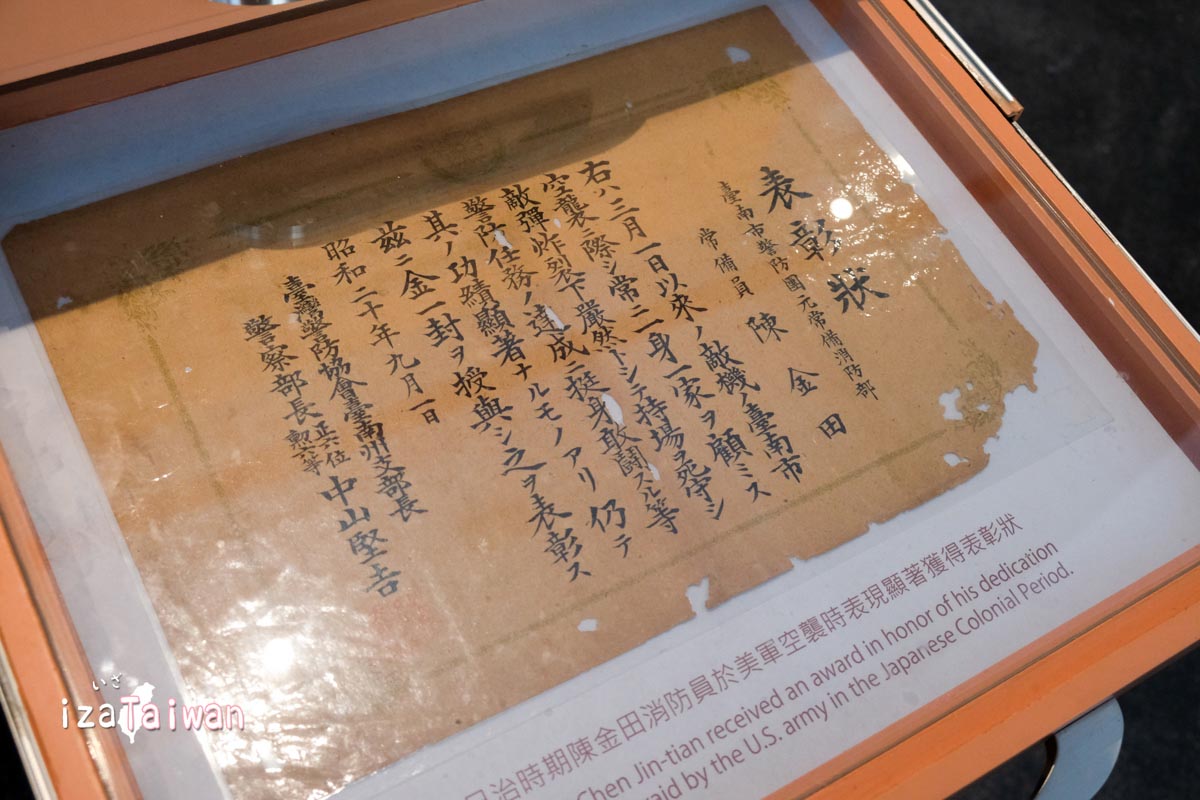 表彰狀
臺南市警防團元常備消防部
常備員 陳金田
右ハ三月一日以來ノ敵機ノ臺南市
空襲ニ際シ常ニ一身一家ヲ顧ミス
敵彈炸裂下嚴然トシテ持場ヲ死守シ
警防任務ノ達成ニ挺身敢鬪スル等
其ノ功績顯著ナルモノアリ仍テ
茲ニ金一封ヲ授與シ之ヲ表彰ス
昭和二十年九月一日
臺灣警防協會臺南州支部長
警察部長正六位勲六等中山堅吉
日治時期陳金田消防員於美軍空襲時表現顯著獲得表彰狀
Chen Jin-tian received an award in honor of his dedication
raid by the U.S. army in the Japanese Colonial Period.
いざ
izaTaiwan